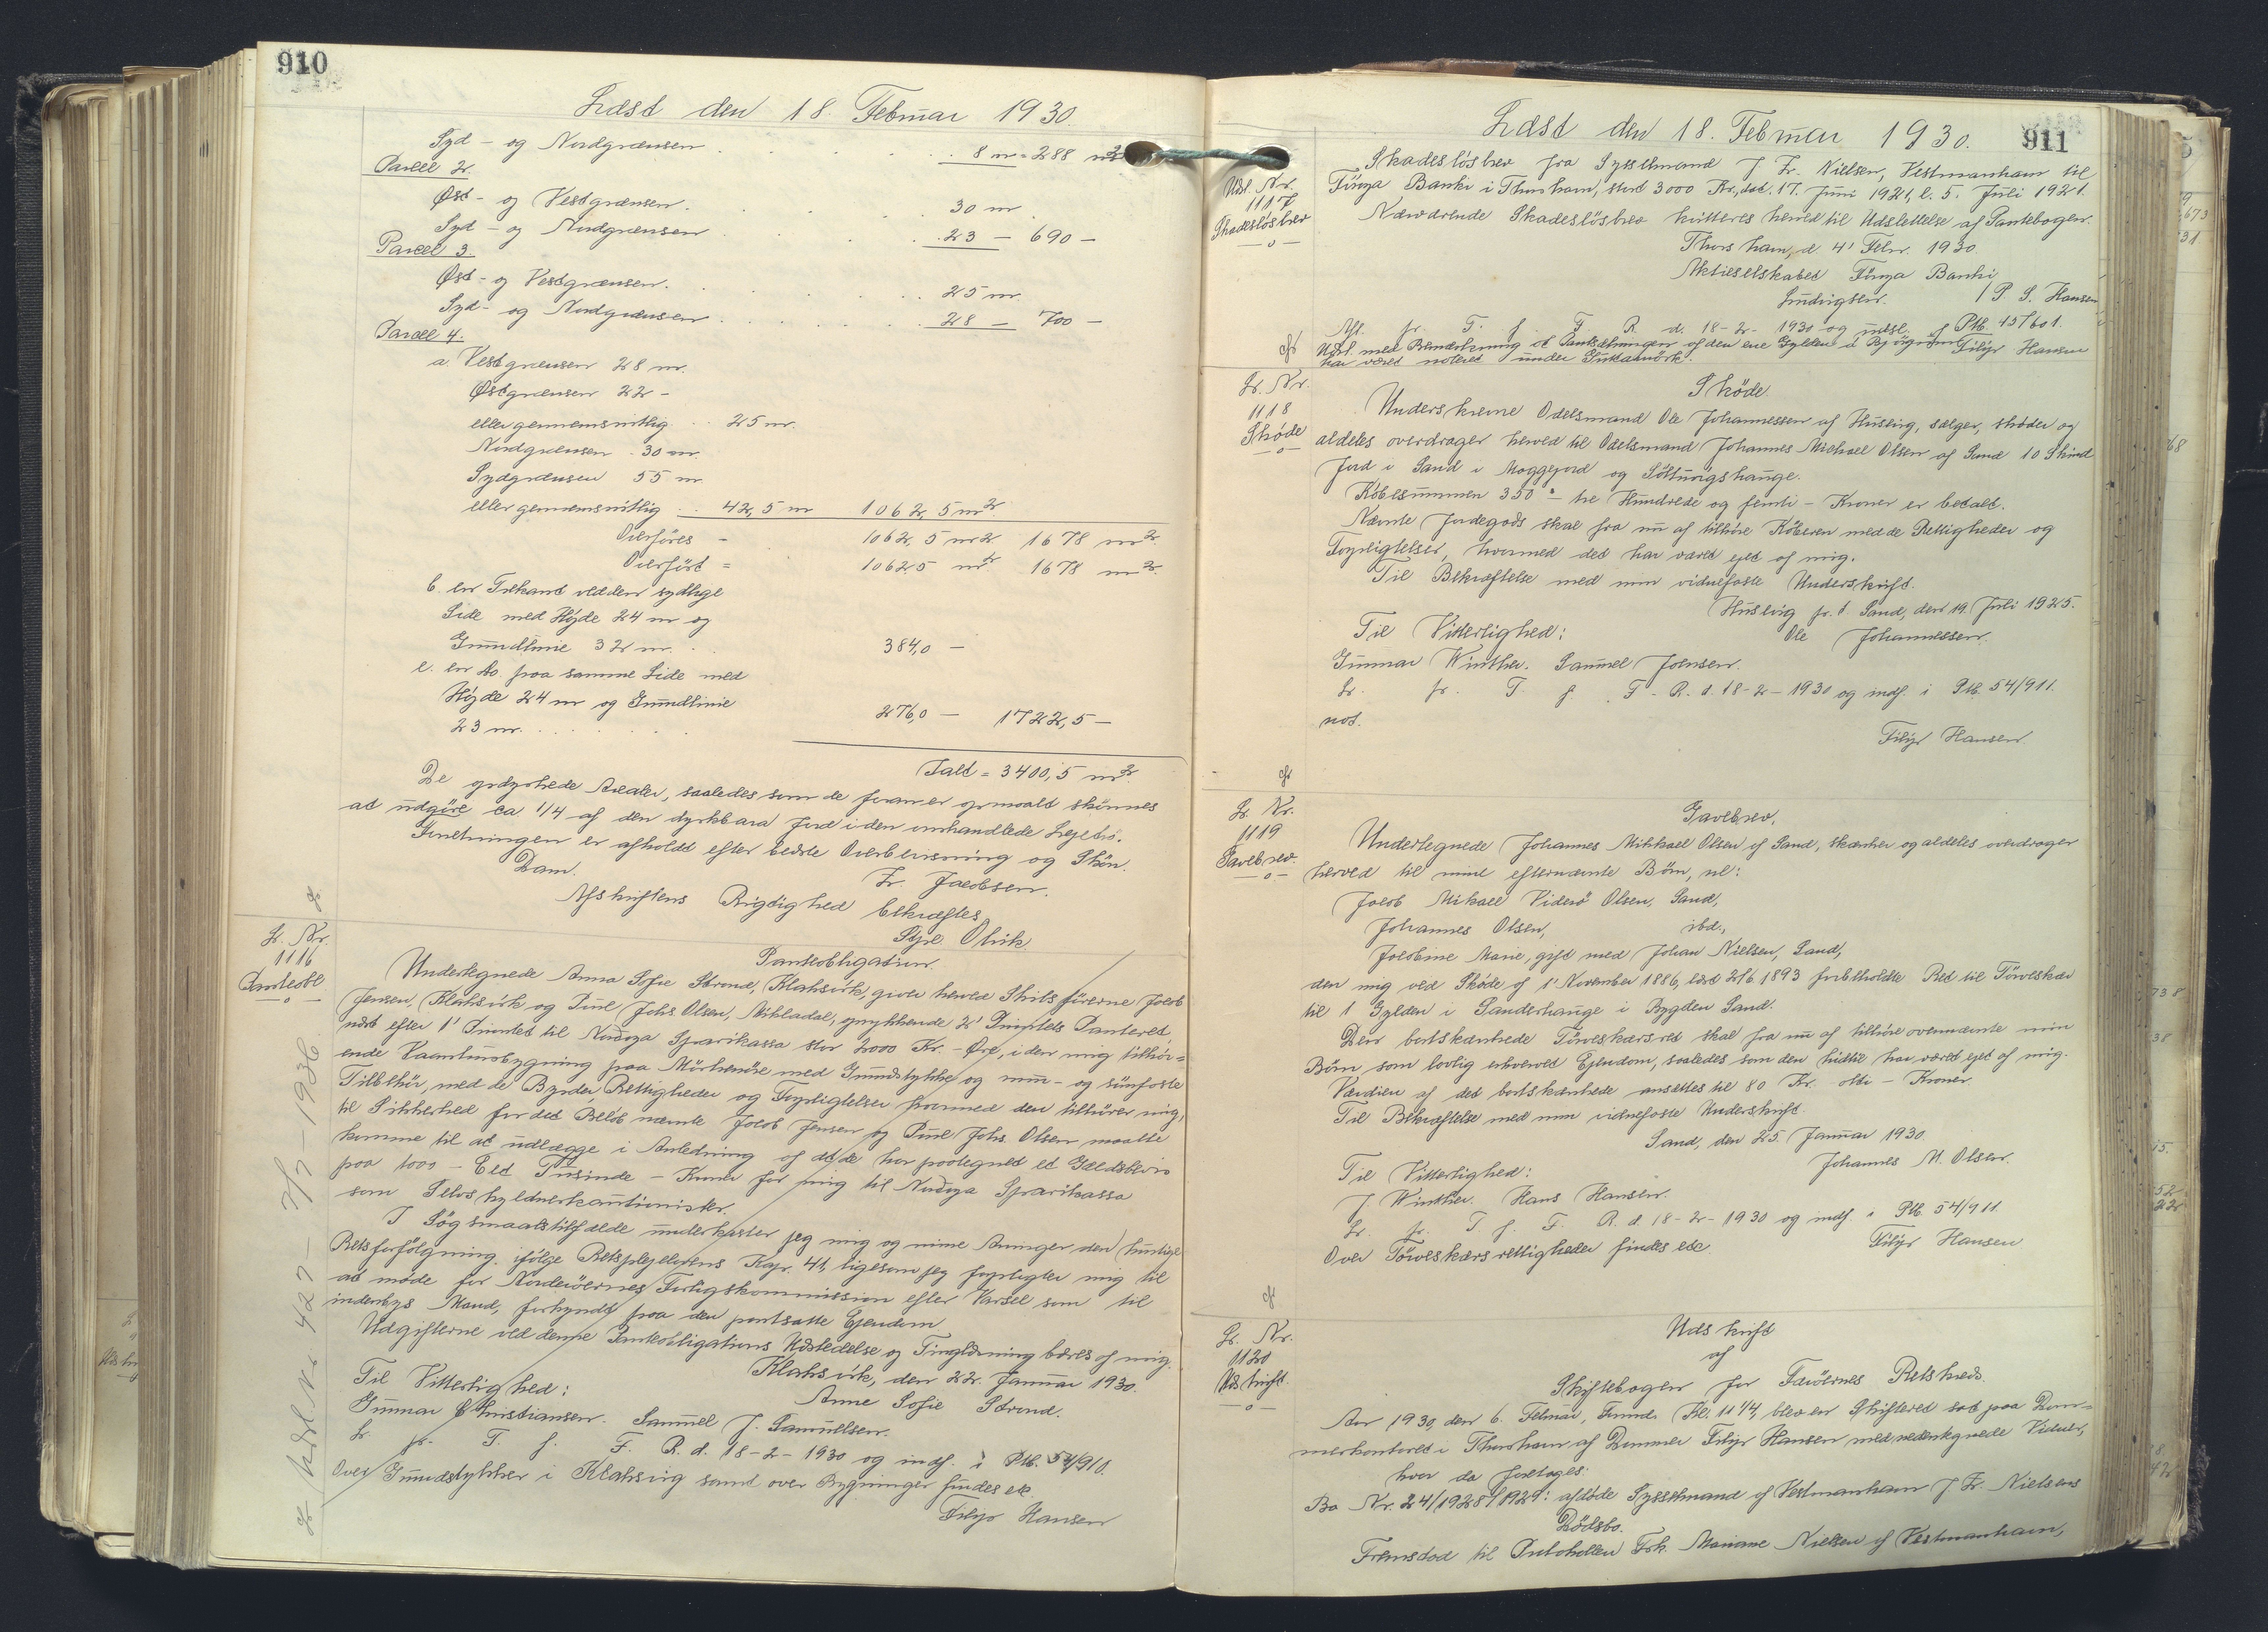 910
Læst den 18. Februar 1930.
Syd- og Nordgrænsen . . . . 8 m = 288 m2
Parcel 2.
Øst- og Vestgrænsen . . . 30 m
Syd- og Nordgrænsen . . . 23 - 690 -
Parcel 3.
Øst- og Vestgrænsen . . . 25 m
Syd- og Nordgrænsen . . . 28 - 700 -
Parcel 4.
a. Vestgrænsen 28 m.
Østgrænsen 22 -
eller gennemsnitlig . . 25 m.
Nordgrænsen . 30 m.
Sydgrænsen 55 m
eller gennemsnitlig . . 42,5 m 1062,5 m2
Overføres - 1062,5 m2 1678 m2
Overført = 1062,5 m2 1678 m2
b. en Trekant ved den sydlige
Side med Höjde 24 m og
Grundlinie 32 m. . 384,0 -
c. en do. paa samme Side med
Höjde 24 m og Grundlinie
23 m. . . . . . 276,0 - 1722,5 -
Ialt = 3400,5 m2
De opdyrkede Arealer, saaledes som de foran er opmaalt skönnes
at udgöre ca 1/4 af den dyrkbara Jord i den omhandlede Lejebo.
Forretningen er afholdt efter bedste Overbevisning og Skön.
Dam. Fr. Jacobsen.
Afskriftens Rigtighed bekræftes
Olrik
L. Nr.
1116
Panteobl
Panteobligation.
Undertegnede Anna Sofie Strond, Klaksvik, giver herved Skibsförerne Jacob
Jensen, Klaksvik og Poul Johs. Olsen, Mikladal, oprykkende 2' Prioritets Panteret
næst efter 1' Prioritet til Nordoya Sparikassa stor 2000 Kr. - Øre, i den mig tilhör=
ende Vaaningsbygning paa med Grundstykke og mur- og sömfaste
Tilbehör, med de Byrder, Rettigheder og Forpligtelser hvormed den tilhörer mig,
til Sikkerhed for det Belöb nævnte Jacob Jensen og Poul Johs. Olsen maatte
komme til at udlægge i Anledning af at de har paategnet et Gældsbevis
paa 1000 - Eet Tusinde - Kroner for mig til Nordoya Sparikassa
som Selvskyldnerkautionister.
I Sögsmaalstilfælde underkaster jeg mig og mine Arvinger den hurtige
Retsforfölgning ifölge Retsplejelovens Kap. 41, ligesom jeg forpligter mig til
at möde for Norderöernes Forligskommission efter Varsel som til
indenbys Mand, forkyndt paa den pantsatte Ejendom.
Udgifterne ved denne Panteobligations Udstedelse og Tinglæsning bæres af mig.
Klaksvik, den 22. Januar 1930.
Til Vitterlighed: Anne Sofie Strond.
Gunnar Christiansen. Samuel J. Samuelsen.
L. fr. T. f. F. R. d. 18-2-1930 og indf. i Ptb. 54/910.
Over Grundstykker i Klaksvig samt over Bygninger findes ek.
Filip Hansen
Udsl. Nr. 427 - 7/7 - 1936
911
Læst den 18. Februar 1930.
Udsl. Nr.
1117
Skadeslösbrev
Skadeslösbrev fra Sysselmand J. Fr. Nielsen, Vestmanhavn til
Föroya Banki i Thorshavn, stort 3000 Kr., dat. 17. Juni 1921, l. 5. Juli 1921.
Nærværende Skadeslösbrev kvitteres herved til Udslettelse af Pantebogen.
Thorshavn, d. 4' Febr. 1930
Aktieselskabet Föroya Banki
/ P. S. Hansen
Afl. fr. T. f. F. R. d. 18-2-1930 og udsl. af Ptb. 45/601.
Udsl. med Bemærkning at Pantsætningen af den ene Gylden
har været noteret under Filip Hansen
L. Nr.
1118
Sköde
Sköde.
Underskrevne Odelsmand Ole Johannessen af Husevig, sælger, sköder og
aldeles overdrager herved til Odelsmand Johannes Michael Olsen af Sand 10 Skind
Jord i Sand i Moggejord og
Köbesummen 350 - tre Hundrede og femti - Kroner er betalt.
Nævnte Jordegods skal fra nu af tilhöre Köberen med de Rettigheder og
Forpligtelser, hvormed det har været ejet af mig.
Til Bekræftelse med min vidnefaste Underskrift.
Husevig pr. Sand, den 19. Juli 1925.
Til Vitterlighed: Ole Johannessen.
Gunnar Winther. Samuel Joensen.
L. fr. T. f. F. R. d. 18-2-1930 og indf. i Ptb. 54/911.
not.
Filip Hansen
L. Nr.
1119
Gavebrev
Gavebrev.
Undertegnede Johannes Mikkael Olsen af Sand, skænker og aldeles overdrager
herved til mine efternævnte Börn, nl:
Jacob Mikael Viderö Olsen, Sand,
Johannes Olsen, ibd.,
Jacobine Marie, gift med Johan Nielsen, Sand,
den mig ved Sköde af 1' November 1886, læst 2/6 1893 forbeholdte Ret til Törveskær
til 1 Gylden i Sanderhauge i Bygden Sand.
Den bortskænkede Törveskærsret skal fra nu af tilhöre ovennævnte mine
Börn, som lovlig erhvervet Ejendom, saaledes som den hidtil har været ejet af mig.
Værdien af det bortskænkede ansættes til 80 Kr. - otti - Kroner.
Til Bekræftelse med min vidnefaste Underskrift.
Sand, den 25. Januar 1930.
Til Vitterlighed: Johannes M. Olsen.
J. Winther. Hans Hansen.
L. fr. T. f. F. R. d. 18-2-1930 og indf. i Ptb. 54/911.
Over Törveskærsrettigheder findes ek. Filip Hansen
L. Nr.
1120
Udskrift
Udskrift
af
Skiftebogen for Færöernes Retskreds.
Aar 1930, den 6. Februar, Form. Kl. 11 1/4, blev en Skifteret sat paa Dom=
merkontoret i Thorshavn af Dommer Filip Hansen med nedentegnede Vidner,
hvor da foretoges:
Bo Nr. 24/1928/1929: afdöde Sysselmand af Vestmanhavn J. Fr. Nielsens
Dödsbo.
Fremstod til Protokollen Frk. Mariane Nielsen af Vestmanhavn,